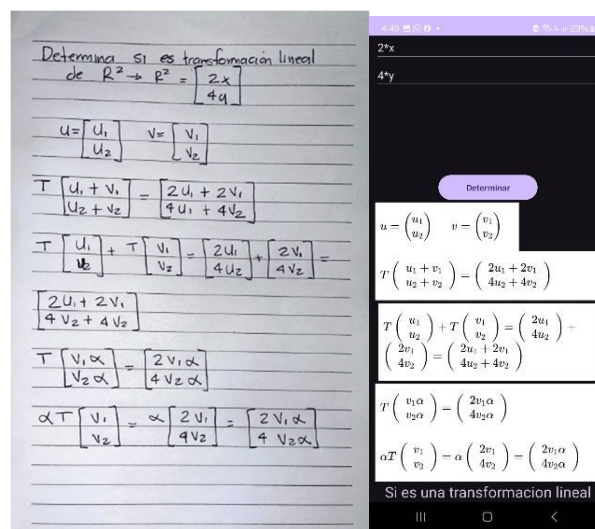 Determina si es transformación lineal
de R² → R² = [2x
4y]
u = [u₁
u₂] v = [v₁
v₂]
T [u₁ + v₁
u₂ + v₂] = [2u₁ + 2v₁
4u₁ + 4v₂]
T [u₁
u₂] + T [v₁
v₂] = [2u₁
4u₂] + [2v₁
4v₂] =
[2u₁ + 2v₁
4v₂ + 4v₂]
T [v₁α
v₂α] = [2v₁α
4v₂α]
αT [v₁
v₂] = α [2v₁
4v₂] = [2v₁α
4v₂α]
4:49
23%
2*x
4*y
Determinar
u = (u₁
u₂) v = (v₁
v₂)
T (u₁ + v₁
u₂ + v₂) = (2u₁ + 2v₁
4u₂ + 4v₂)
T (u₁
u₂) + T (v₁
v₂) = (2u₁
4u₂) +
(2v₁
4v₂) = (2u₁ + 2v₁
4u₂ + 4v₂)
T (v₁α
v₂α) = (2v₁α
4v₂α)
αT (v₁
v₂) = α (2v₁
4v₂) = (2v₁α
4v₂α)
Si es una transformacion lineal